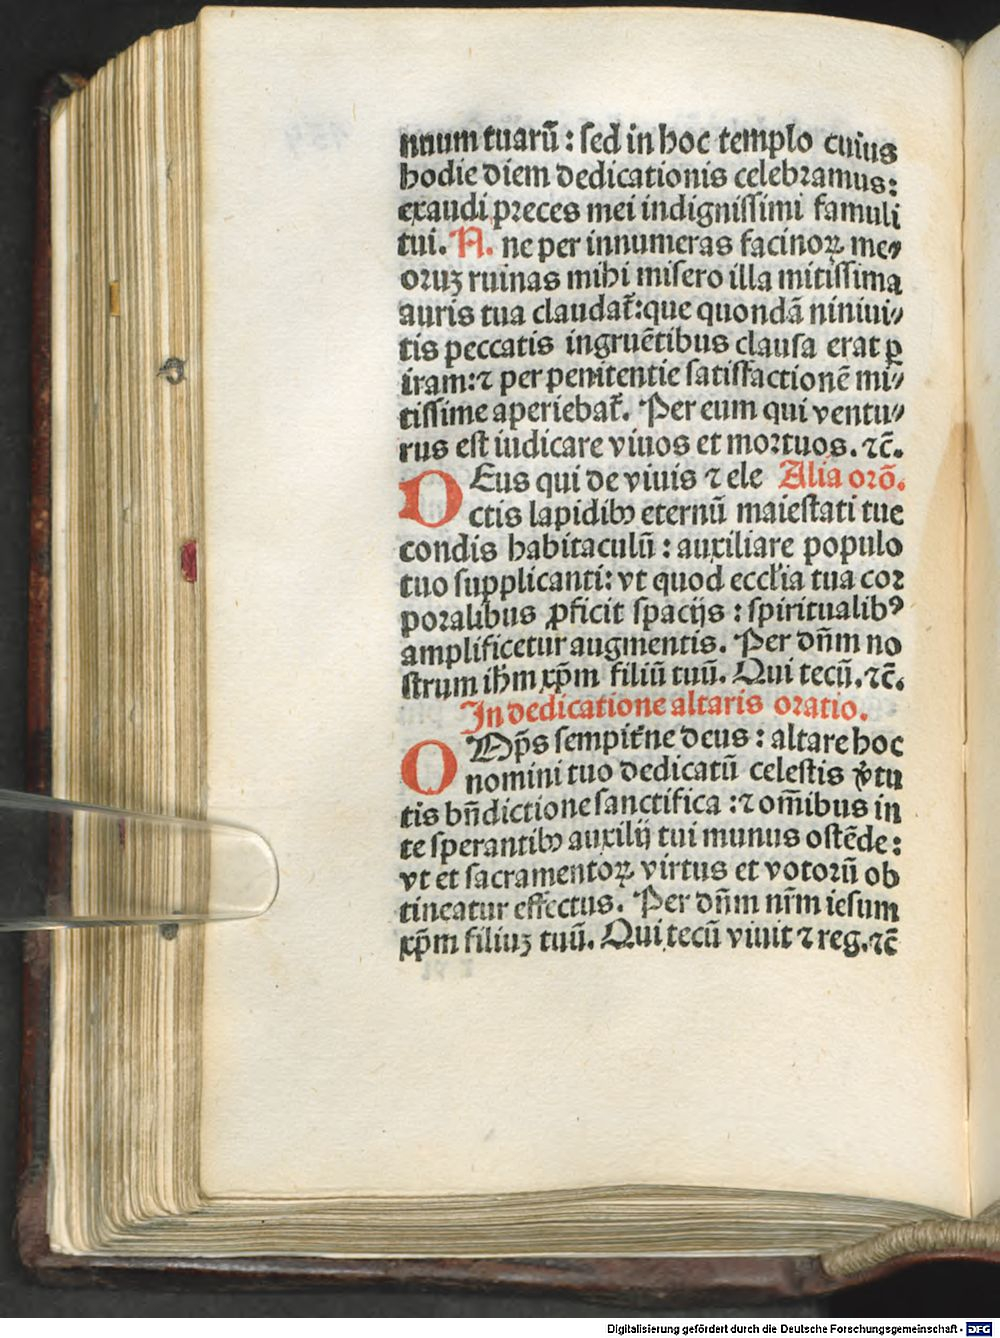 nuum tuarū : sed in hoc templo cuius
hodie diem dedicationis celebramus:
exaudi preces mei indignissimi famuli
tui. N. ne per innumeras facinoꝝ me⸗
oruꝫ ruinas mihi misero illa mitissima
auris tua claudat̄:que quondā niniui⸗
tis peccatis ingruētibus clausa erat ꝑ
iram:⁊ per penitentie satisfactionē mi⸗
tissime aperiebat̄. Per eum qui ventu⸗
rus est iudicare viuos et mortuos. ⁊c̄.
DEus qui de viuis ⁊ ele Alia orō.
ctis lapidibꝫ eternū maiestati tue
condis habitaculū : auxiliare populo
tuo supplicanti: vt quod eccl'ia tua cor
poralibus ꝓficit spacijs : spiritualibꝰ
amplificetur augmentis. Per dn̄m no
strum ih̄m xp̄m filiū tuū. Qui tecū. ⁊c̄.
In dedicatione altaris oratio.
OMp̄s sempit̄ne deus : altare hoc
nomini tuo dedicatū celestis v̓tu
tis bn̄dictione sanctifica :⁊ om̄ibus in
te sperantibꝫ auxilij tui munus ostēde :
vt et sacramentoꝝ virtus et votorū ob
tineatur effectus. Per dn̄m nr̄m iesum
xp̄m filiuꝫ tuū. Qui tecū viuit ⁊ reg. ⁊c̄
Digitalisierung gefördert durch die Deutsche Forschungsgemeinschaft - DFG